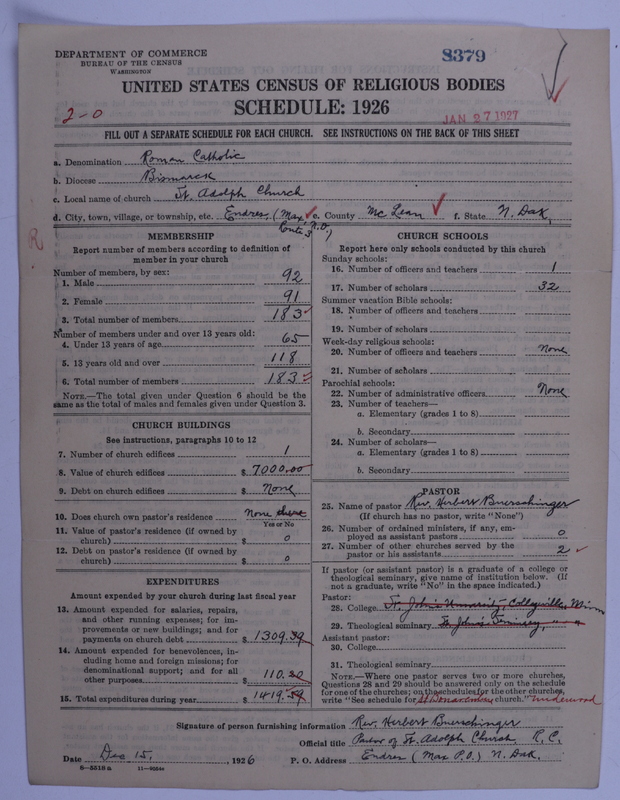 DEPARTMENT OF COMMERCE
BUREAU OF THE CENSUS
WASHINGTON
8379
UNITED STATES CENSUS OF RELIGIOUS BODIES
SCHEDULE: 1926
2-0
JAN 27 1927
FILL OUT A SEPARATE SCHEDULE FOR EACH CHURCH. SEE INSTRUCTIONS ON THE BACK OF THIS SHEET
a. Denomination Roman Catholic
b. Diocese Bismarck
c. Local name of church St. Adolph Church
d. City, town, village, or township, etc. Endres, (Max P.O.) e. County Mc Lean f. State N. Dak.
R
MEMBERSHIP
Report number of members according to definition of
member in your church
Number of members, by sex:
1. Male 92
2. Female 91
3. Total number of members 183
Number of members under and over 13 years old:
4. Under 13 years of age 65
5. 13 years old and over 118
6. Total number of members 183
NOTE.—The total given under Question 6 should be the
same as the total of males and females given under Question 3.
CHURCH BUILDINGS
See instructions, paragraphs 10 to 12
7. Number of church edifices 1
8. Value of church edifices $ 7000.00
9. Debt on church edifices $ None
10. Does church own pastor's residence None
Yes or No
11. Value of pastor's residence (if owned by
church) $ 0
12. Debt on pastor's residence (if owned by
church) $ 0
EXPENDITURES
Amount expended by your church during last fiscal year
13. Amount expended for salaries, repairs,
and other running expenses; for im-
provements or new buildings; and for
payments on church debt $ 1309.39
14. Amount expended for benevolences, in-
cluding home and foreign missions; for
denominational support; and for all
other purposes $ 110.20
15. Total expenditures during year $ 1419.59
CHURCH SCHOOLS
Report here only schools conducted by this church
Sunday schools:
16. Number of officers and teachers 1
17. Number of scholars 32
Summer vacation Bible schools:
18. Number of officers and teachers
19. Number of scholars
Week-day religious schools:
20. Number of officers and teachers None
21. Number of scholars
Parochial schools:
22. Number of administrative officers None
23. Number of teachers—
a. Elementary (grades 1 to 8)
b. Secondary
24. Number of scholars—
a. Elementary (grades 1 to 8)
b. Secondary
PASTOR
25. Name of pastor Rev. Herbert Buerschinger
(If church has no pastor, write "None")
26. Number of ordained ministers, if any, em-
ployed as assistant pastors 0
27. Number of other churches served by the
pastor or his assistants 2
If pastor (or assistant pastor) is a graduate of a college or
theological seminary, give name of institution below. (If
not a graduate, write "No" in the space indicated.)
Pastor:
28. College St. John's University, Collegeville, Minn
29. Theological seminary St. John's Seminary, " "
Assistant pastor:
30. College
31. Theological seminary
NOTE.—Where one pastor serves two or more churches,
Questions 28 and 29 should be answered only on the schedule
for one of the churches; on the schedules for the other churches,
write "See schedule for St Bonaventure church." Underwood
Signature of person furnishing information Rev. Herbert Buerschinger
Official title Pastor of St. Adolph Church R.C.
Date Dec 15, 1926 P. O. Address Endres (Max P.O.) N. Dak.
8-5518 a